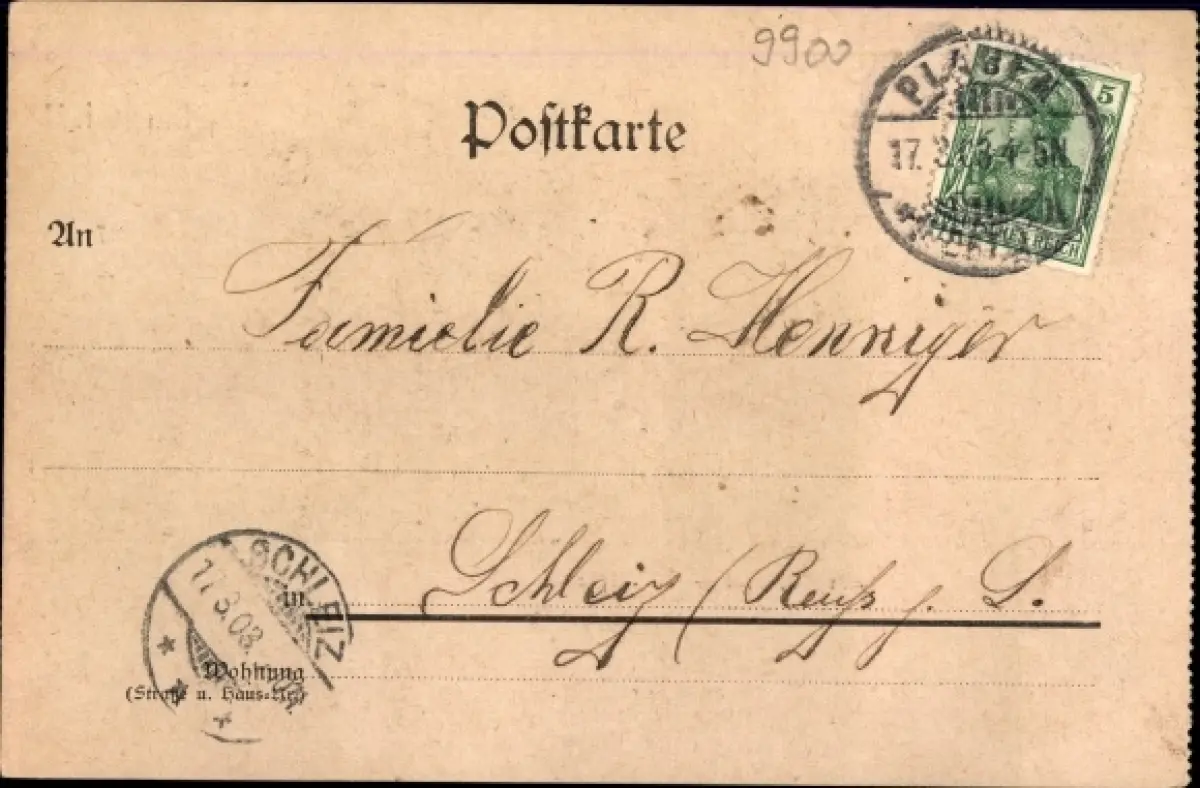 9900
Postkarte
PLAUEN
17.3.03. 4-5N.
5
REICH
An
Familie R. Henniger
SCHLEIZ
17.3.03.
in
Schleiz (Reuß j. L.
Wohnung
(Straße u. Haus-Nr.)